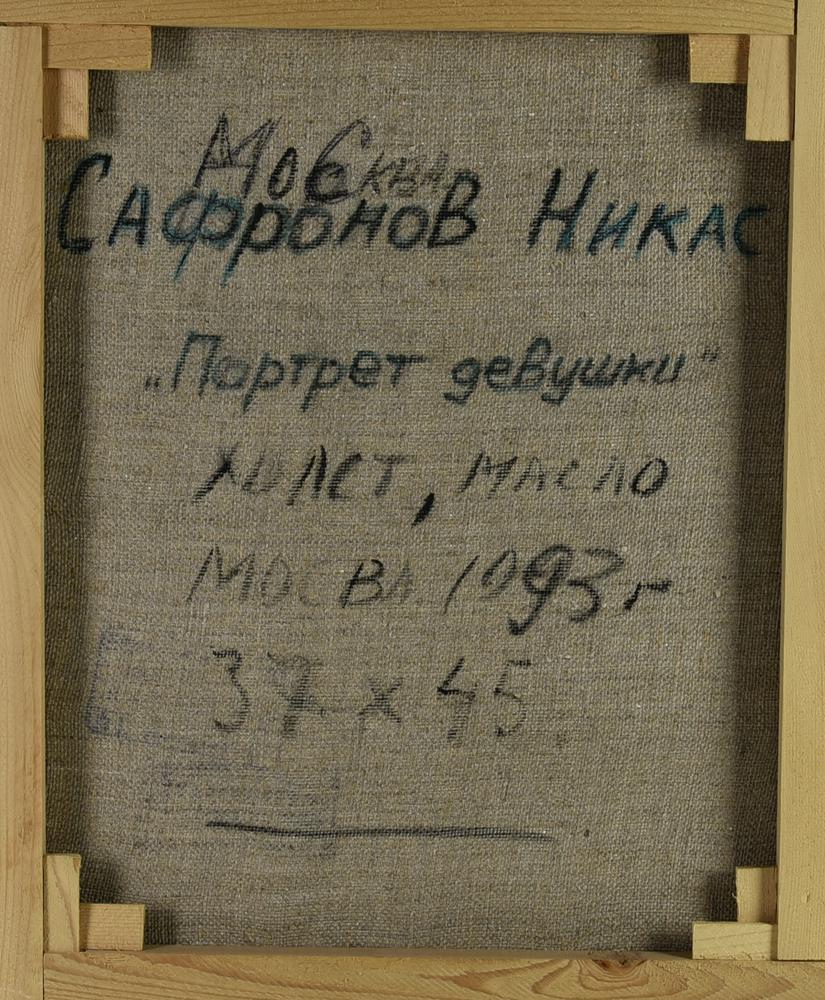 Москва
Сафронов Никас
„Портрет девушки“
Холст, масло
МОСВА 1993 г
37 х 45